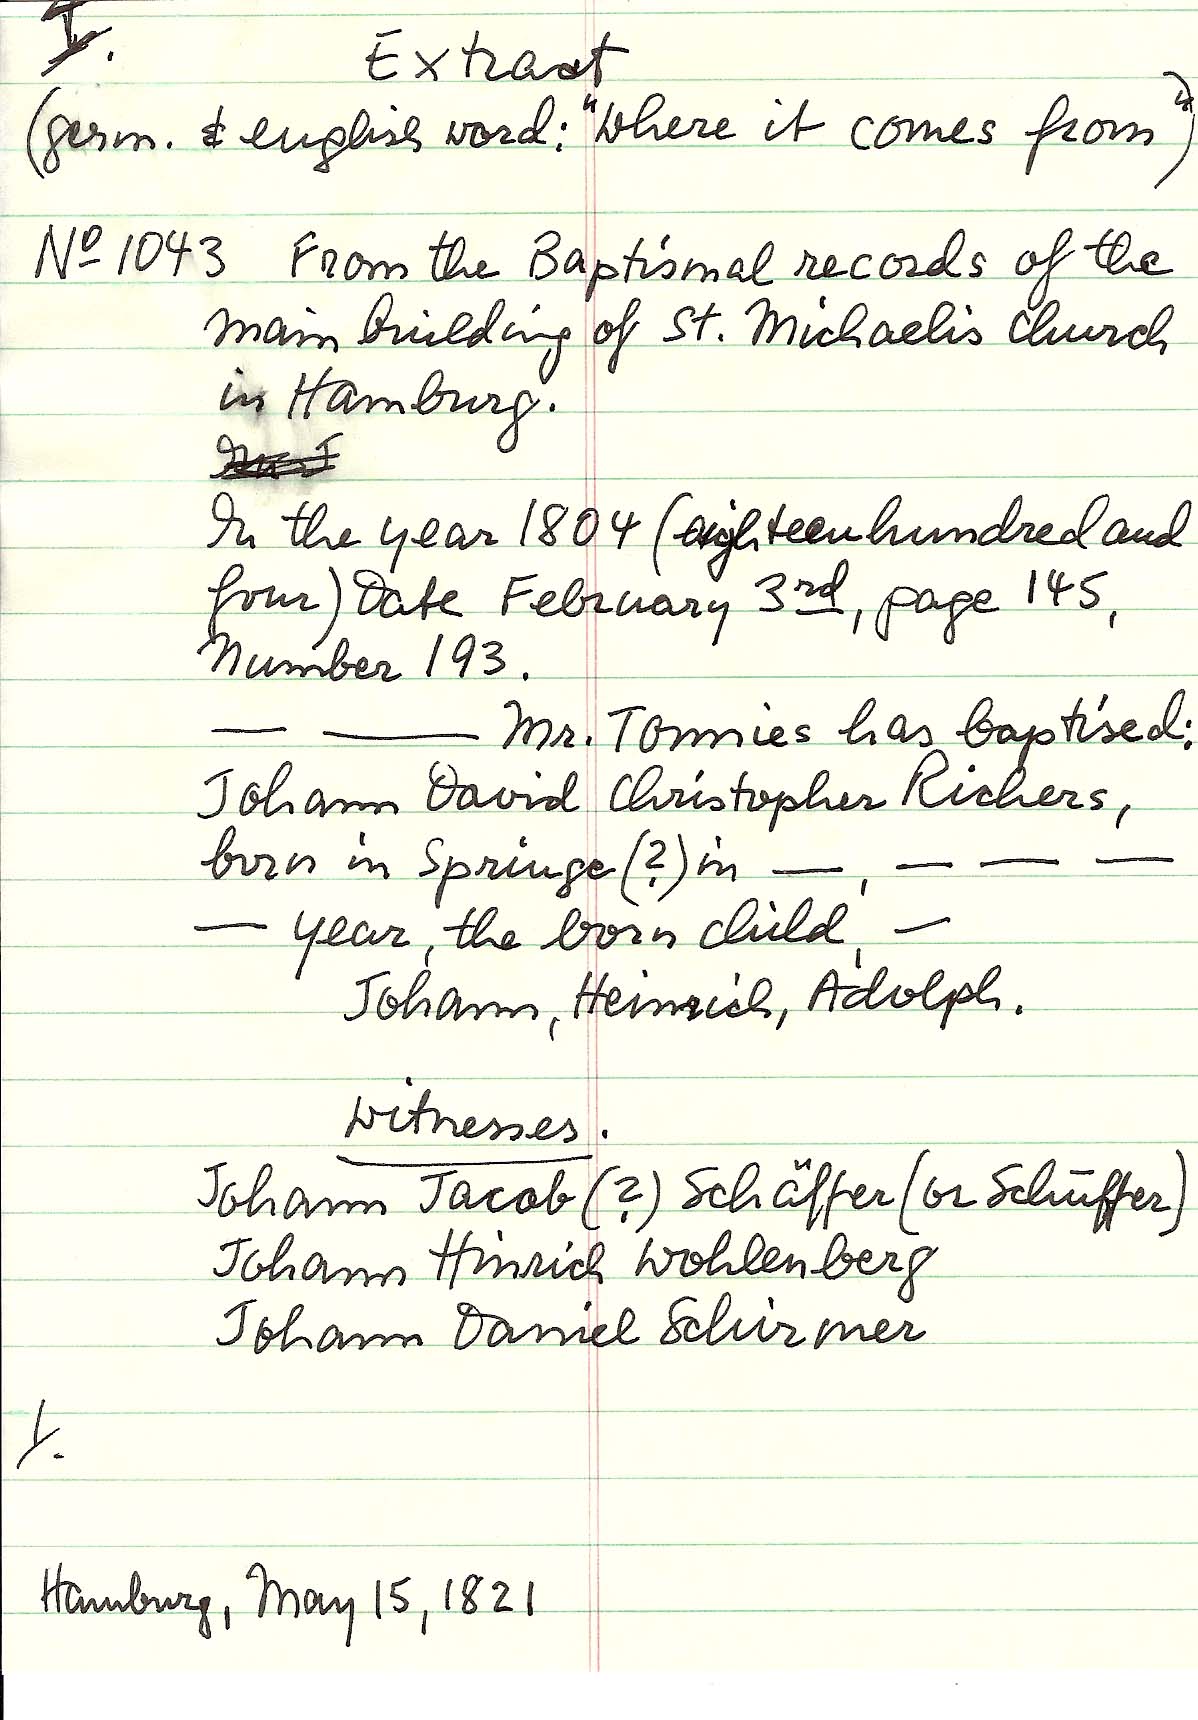 I.
Extract
(germ. & english word: "Where it comes from")
Nº 1043 From the Baptismal records of the
main building of St. Michaelis Church
in Hamburg.
In the year 1804 (eighteenhundred and
four) Date February 3rd, page 145,
Number 193.
— — Mr. Tonnies has baptised:
Johann David Christopher Richers,
born in Springe (?) in —, — — —
— year, the born child, —
Johann, Heinrich, Adolph.
Witnesses.
Johann Jacob (?) Schäffer (or Schüffer)
Johann Hinrich Wohlenberg
Johann Daniel Schirmer
Hamburg, May 15, 1821